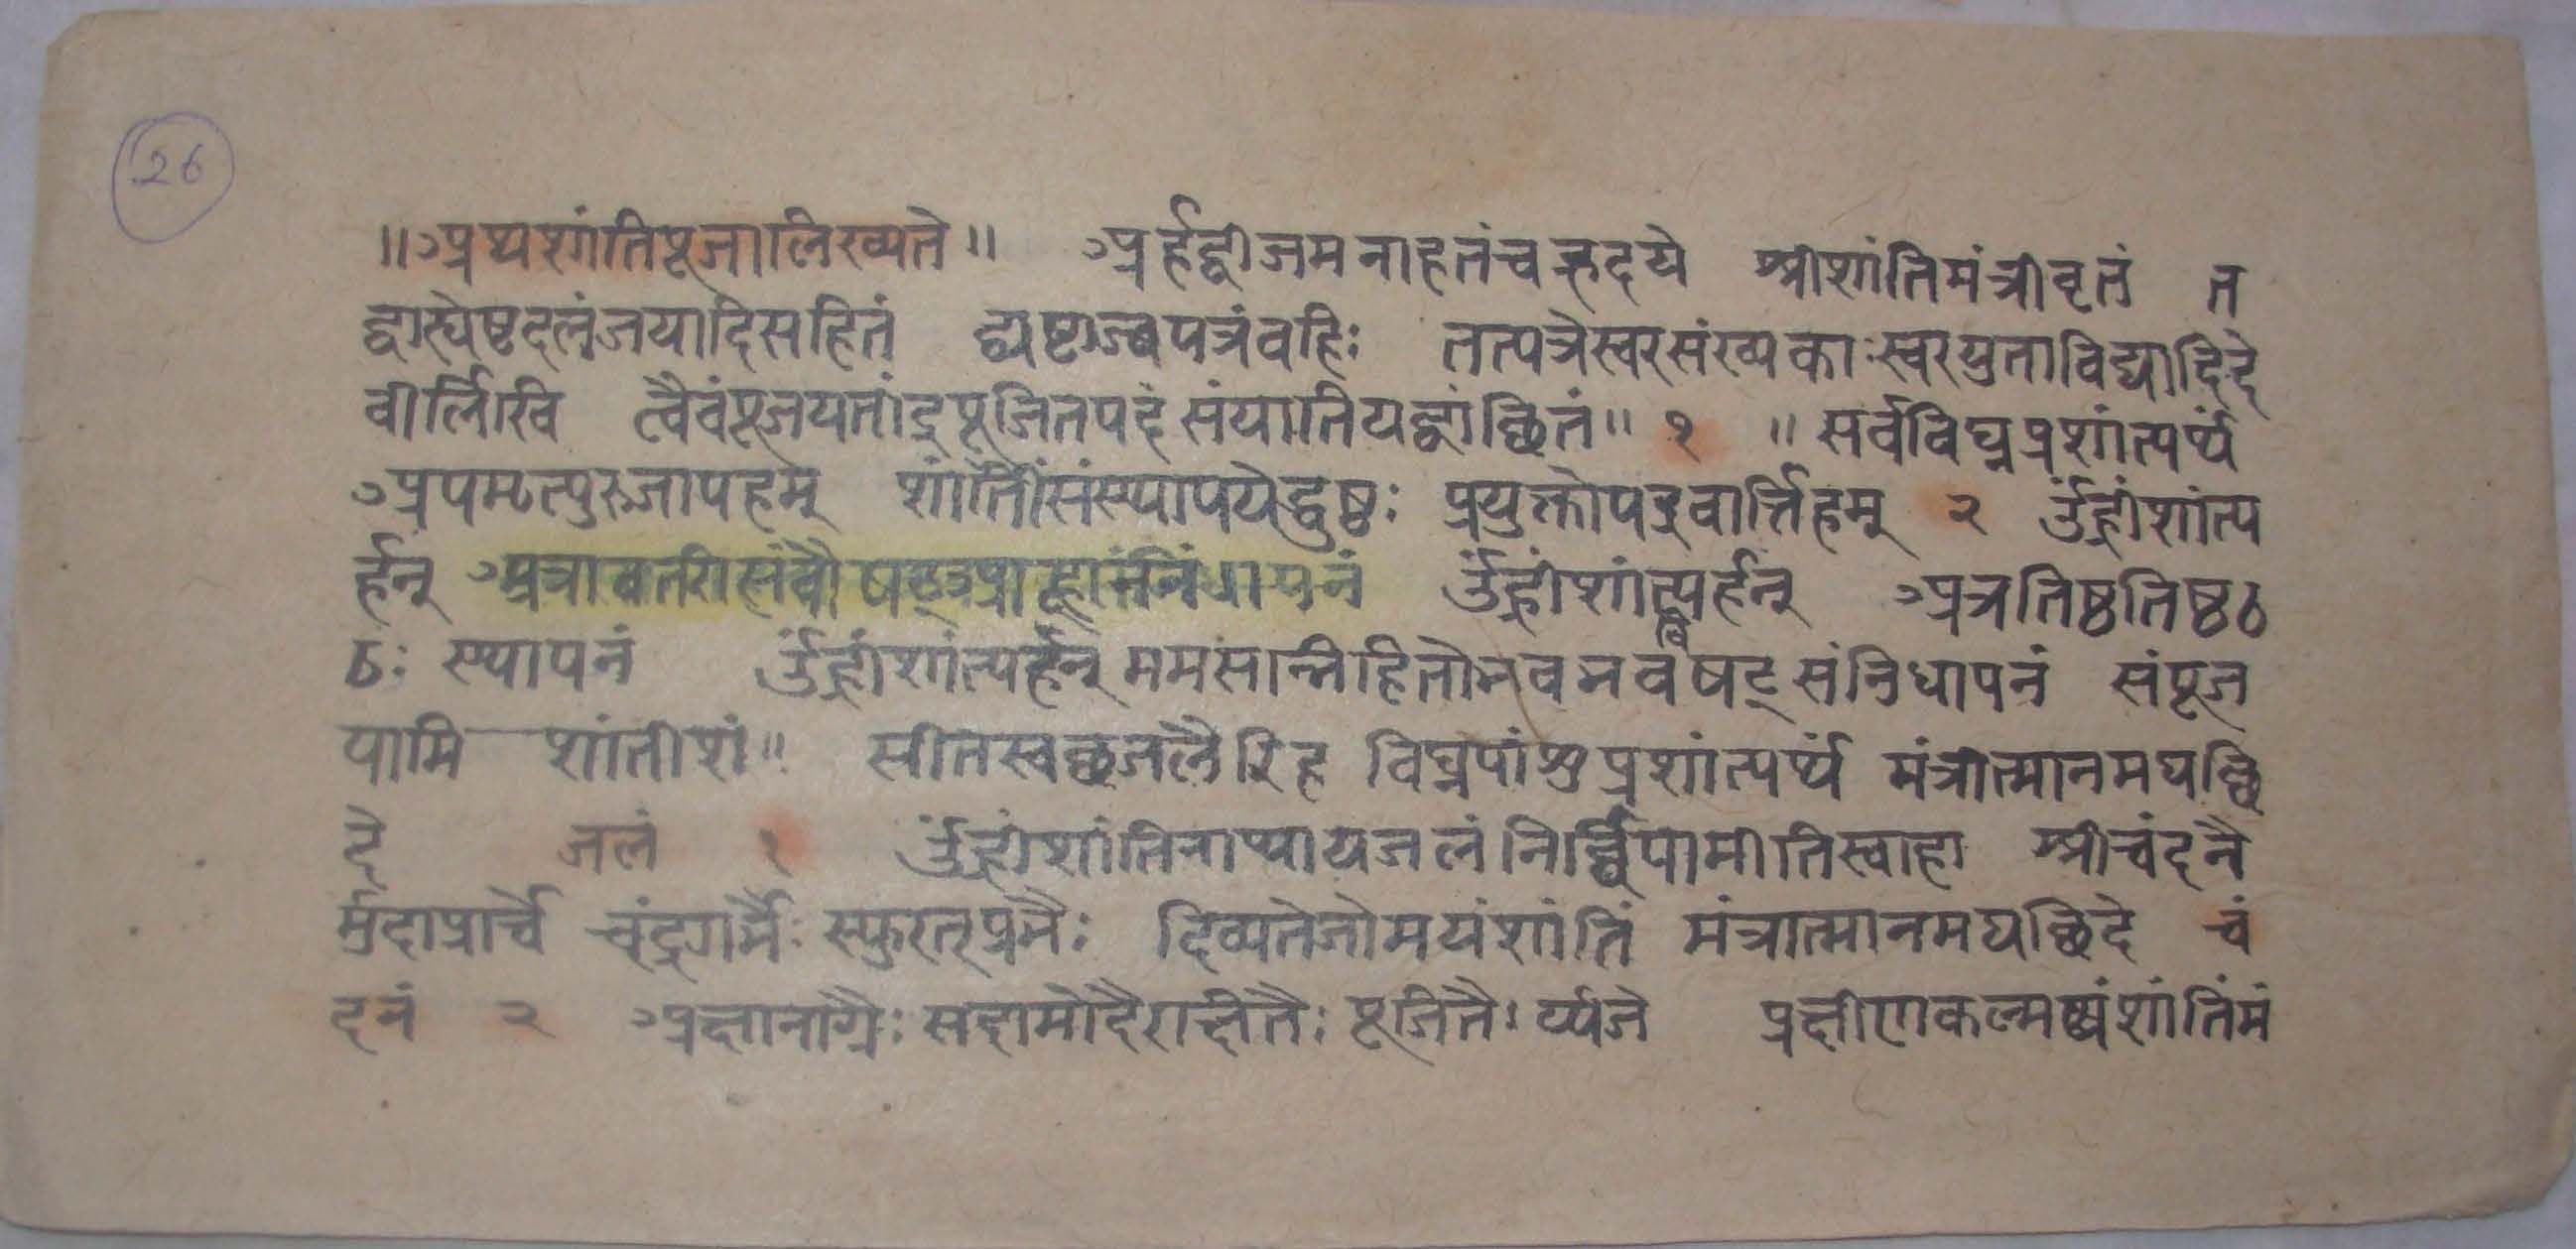 26
॥अथशांतिपूजालिख्यते॥ अर्हद्बीजमनाहतंचहृदये श्रीशांतिमंत्रीवृतं त
द्बाह्येष्टदलंजयादिसहितं द्व्यष्टाब्जपत्रंवहिः तत्पत्रेस्वरसंख्यकाःस्वरयुताविद्यादिदे
वीर्लिखि त्वैवंपूजयतांद्रपूजितपदंसंयातियद्वांछितं॥ १ ॥सर्वविघ्नप्रशांत्यर्थं
अपमृत्युरुजापहम् शांतिंसंस्थापये प्रयुक्तोपद्रवार्त्तिहम् २ ॐह्रींशांत्य
र्हन् अत्रावतरीसंवौषट् ॐह्रींशांत्यर्हन् अत्रतिष्ठतिष्ठठ
ठः स्थापनं ॐह्रींशांत्यर्हन्ममसान्निहितोभवभववषट्संनिधापनं संपूज
यामि शांतीशं॥ सीतस्वछजलैरिह विघ्नपांशुप्रशांत्यर्थं मंत्रात्मानमघछि
दे जलं १ ॐह्रींशांतिनाथायजलंनिर्व्वपामीतिस्वाहा श्रीचंदनै
र्मुदाप्रार्चै चंद्रगर्भैःस्फुरत्प्रभैः दिव्यतेजोमयंशांतिं मंत्रात्मानमघछिदे चं
दनं २ सदामोदै पूजितैः र्य्यजे प्रक्षीणकल्मष्यंशांतिंमं